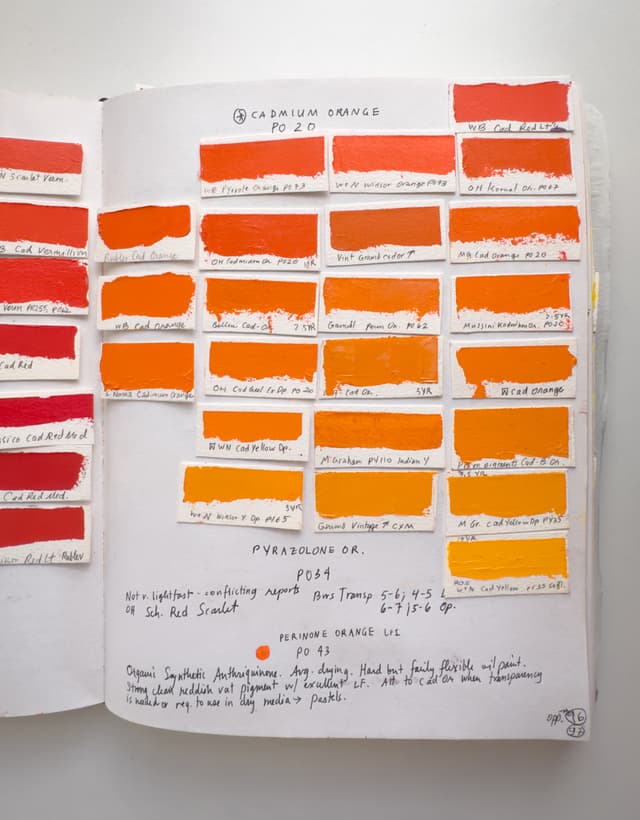 N Scarlet Verm.
B Cad Vermillion
Verm PR255, PO62
Cad Red
sico Cad Red Med
Cad Red Med.
Red Lt Rublev
CADMIUM ORANGE
PO 20
WB Cad Red Lt
WB Pyrrole Orange PO73
W&N Winsor Orange PO73
OH PO67
Rublev Cad Orange
OH Cadmium Or. PO20 YR
Vint Grand Cador ↑
MG Cad Orange PO20
WB Cad Orange
Cad. Or 7.5YR
Gamb Perm Or. PO62
Mussini Or. PO20 7.5YR
Cadmium Orange
OH Cad Yel Ex Dp. PO 20
Cad Or. 5YR
Cad Orange
WN Cad Yellow Dp.
M Graham PY110 Indian Y
Cad. Or.
W&N Winsor Y Dp. PY65 5YR
Vintage ↑ CYM
M Gr. Cad Yellow Dp PY35
W&N Cad Yellow PY35
PYRAZOLONE OR.
PO34
Not v. lightfast - conflicting reports
OH Sch. Red Scarlet
Transp 5-6; 4-5
6-7; 5-6 Op.
PERINONE ORANGE
PO 43
Organic Synthetic Anthriquinone. Avg. drying. Hard but fairly flexible oil paint.
Strong clean reddish vat pigment w/ excellent LF. Alt to Cad Or when transparency
is needed or req. to use in dry media → pastels.
opp.
96
97